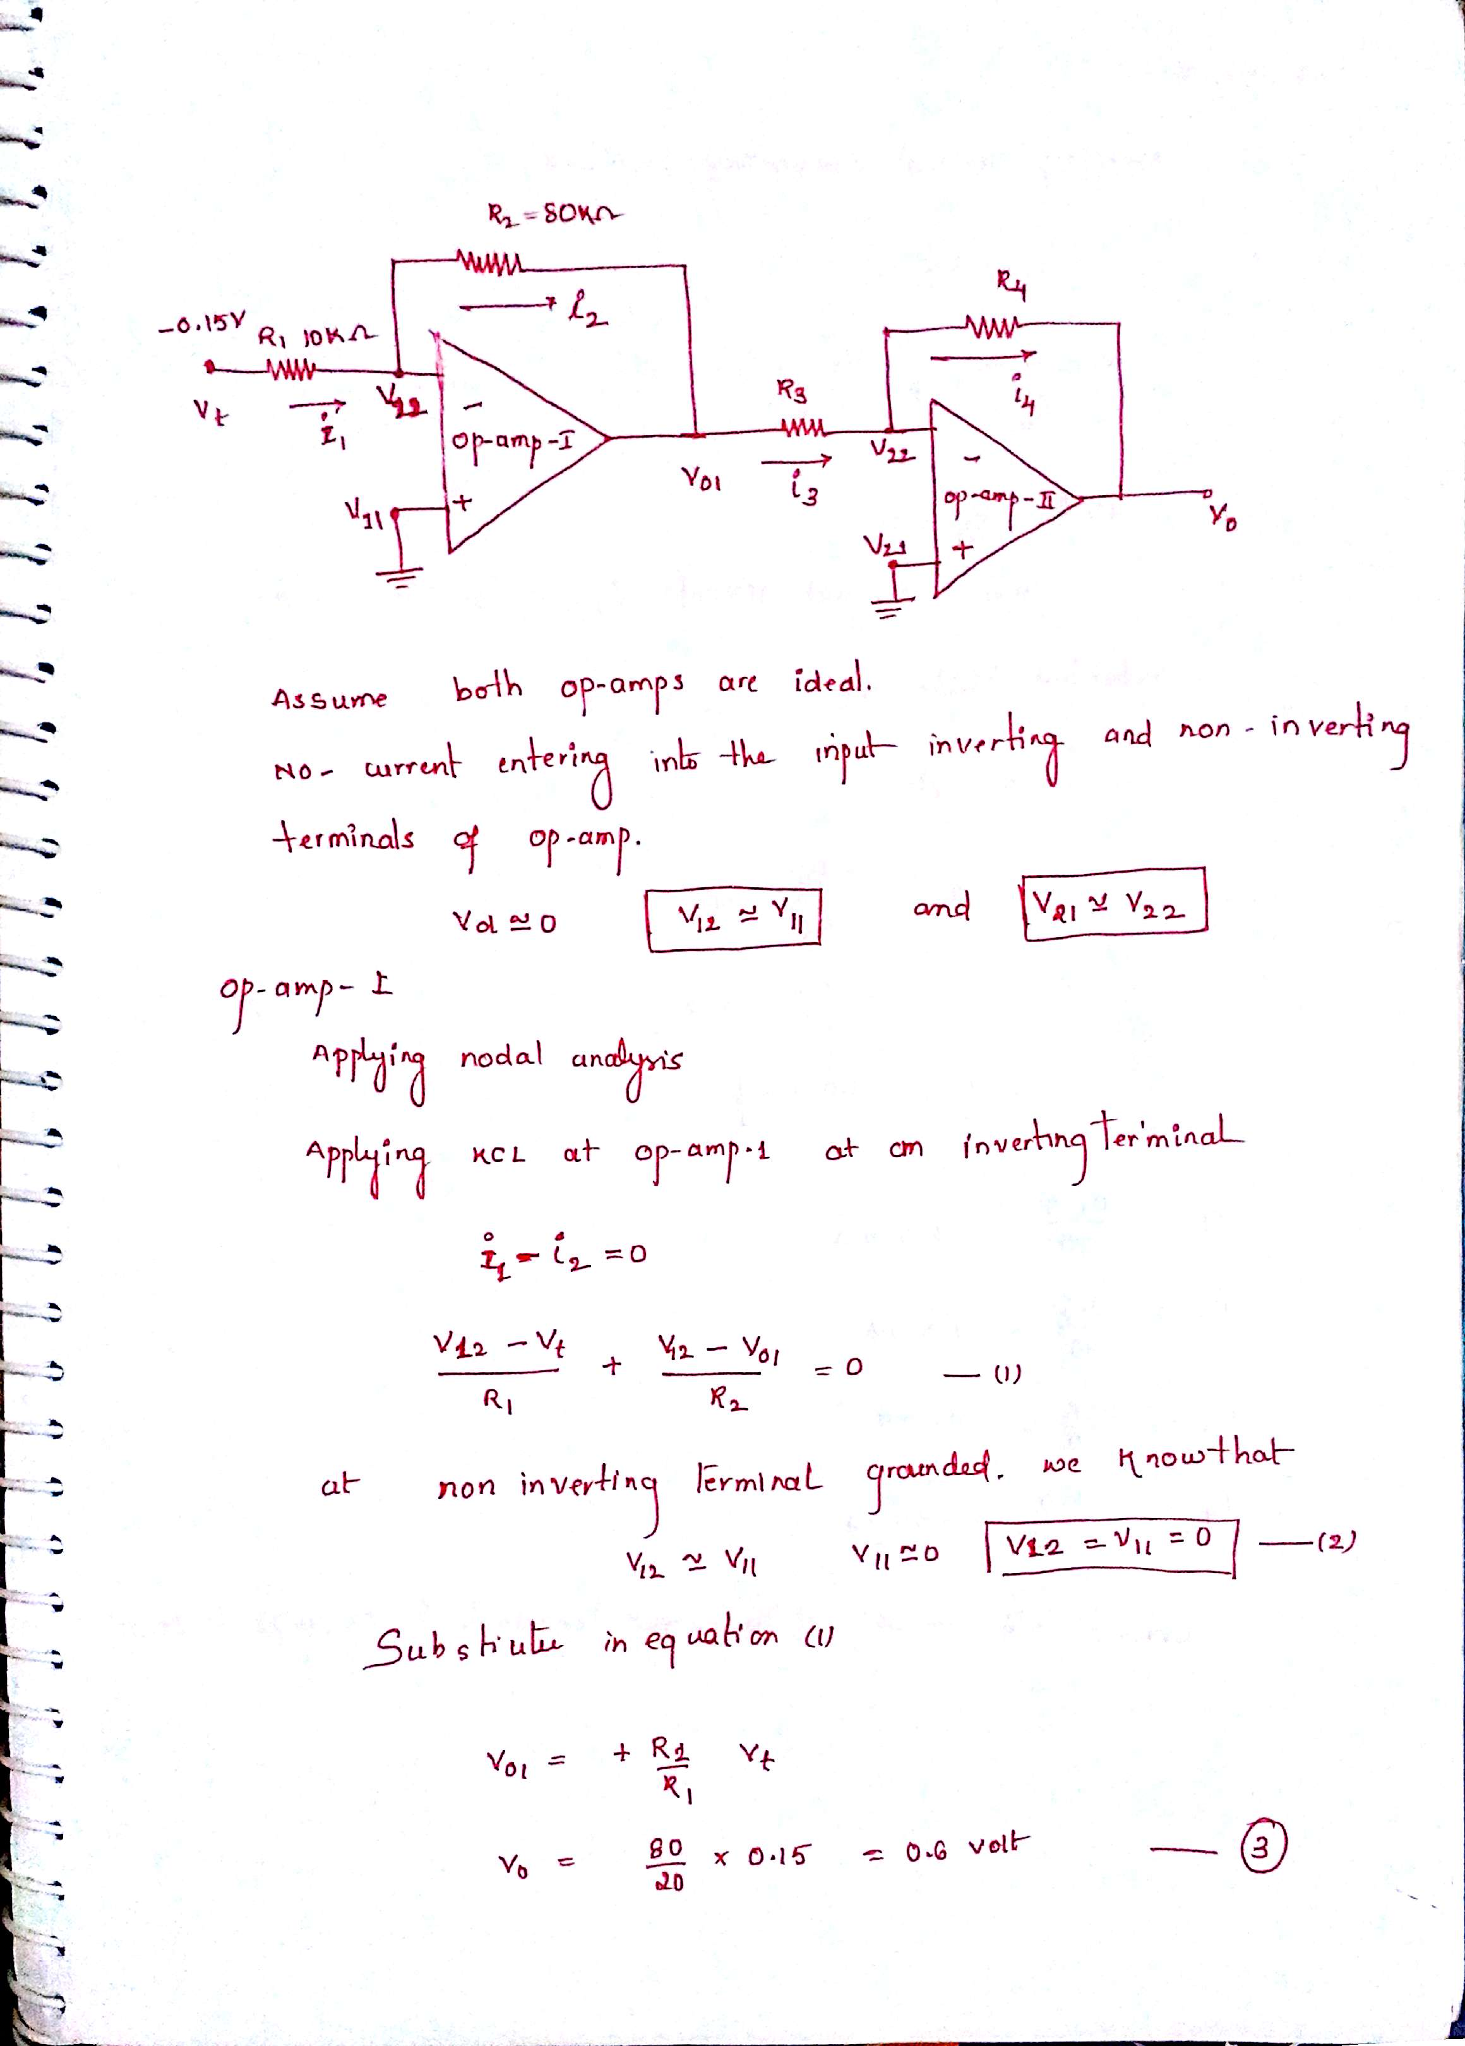 R2 = 80KΩ
i2
R4
-0.15V
R1 10KΩ
Vt
i1
i4
R3
op-amp-I
V01
i3
V22
V11
+
op-amp-II
V0
V21
+
Assume both op-amps are ideal.
No- current entering into the input inverting and non-inverting
terminals of op-amp.
Vd ≃ 0 V12 ≃ V11 and V21 ≃ V22
op-amp-I
Applying nodal analysis
Applying KCL at op-amp-1 at an inverting Terminal
i1 - i2 = 0
V12 - Vt / R1 + V12 - V01 / R2 = 0 — (1)
at non inverting terminal grounded. we know that
V12 ≃ V11 V11 ≃ 0 V12 = V11 = 0 — (2)
Substiute in equation (1)
V01 = + R2/R1 Vt
V0 = 80/20 x 0.15 = 0.6 volt — (3)